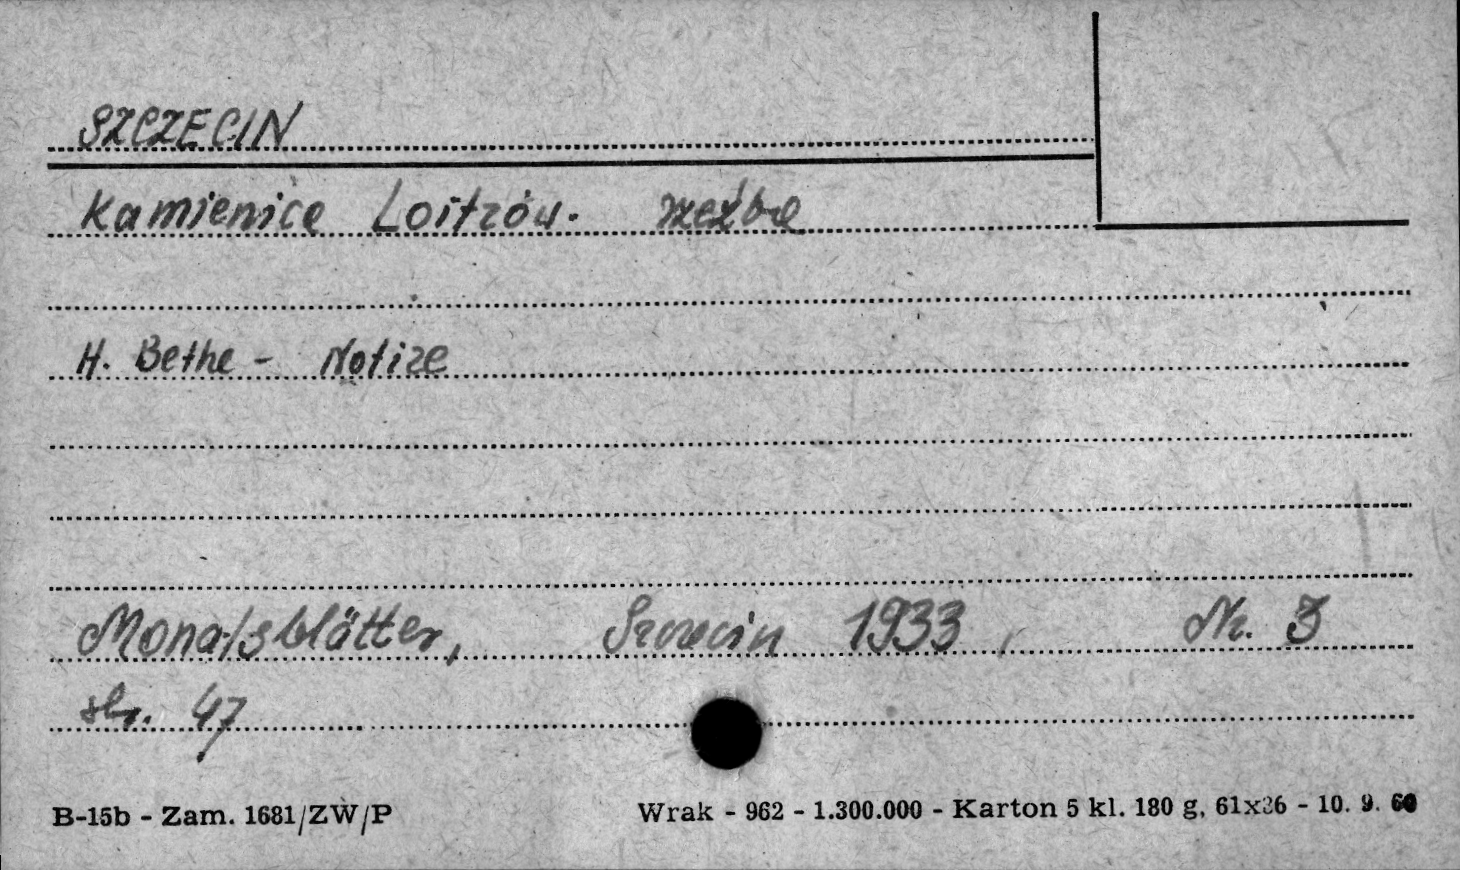 SZCZECIN
Kamienice Loitzów. rzeźba
H. Bethe - Notize
Monatsblätter, Szczecin 1933, Nr. 3
str. 47
B-15b - Zam. 1681/ZW/P Wrak - 962 - 1.300.000 - Karton 5 kl. 180 g, 61x86 - 10. 9. 60